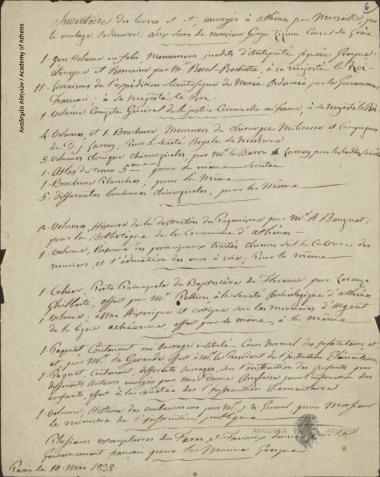 6
Inventaire des livres et et, envoyés à athènes par Marseille, par
le roulage ordinaire, aux soins de monsieur Consul de Grèce
1 Gros Volume in folio Monumens inedits d'antiquité figurée Grecque,
Etrusque et Romaine par Mr. Raoul-Rochette, à sa majesté le Roi
11 Livraisons de l'expédition Scientifique de Morée Ordonnée par le Gouvernement
français; à Sa Majesté le Roi.
1 Volume Compte Général de la justice Criminelle en france, à sa Majesté le Roi
4 Volumes, et 1 Brochure, Memoires de chirurgie Militaire et Campagnes
de D. J. Larrey; Pour la Société Royale de Médecine
5 Volumes Clinique chirurgicale, par Mr. le Baron Larrey, pour la
1 Atlas du Tome 5me pour la même Société
1 Brochure pour la Même
5 differentes brochures chirurgicales, pour la Même
2 Volumes, Histoire de la destruction du Paganisme par Mr. A. Beugnot,
pour la Bibliothèque de la Commune d'athènes
1 Volume, Résumé des principaux traités chinois sur la Culture des
muriers, et l'éducation des vers à soie; Pour la même
1 Cahier Porte Principale du Baptistère de Florence par Lorenzo
Ghiberti, offert par Mr. à la Société archéologique d'athènes
1 Volume, Essai Historique et critique sur les monnaies d'argent
de la ligue achéenne, offert par le même, à la même
1 Paquet Contenant un ouvrage intitulé: Cours Normal des instituteurs, et
par Mr. de Gerando offert à Mr. le Président de l'instruction Elementaire
1 Paquet, Contenant, différents ouvrages, sur l'instruction des Enfants, par
différents auteurs par une Dame anglaise pour l'instruction des
enfants, offert à la Société de l'instruction Elementaire
1 Volume, Histoire des embaumemens par Mr. J. N. Gannal, pour Monsieur
le ministre de l'instruction publique
Plusieurs exemplaires des
Gouvernement français pour la Marine Grecque
Paris le 10 Mai 1838.
Ακαδημία Αθηνών / Academy of Athens
ΑΚΑΔΗΜΙΑ
ΑΘΗΝΩΝ